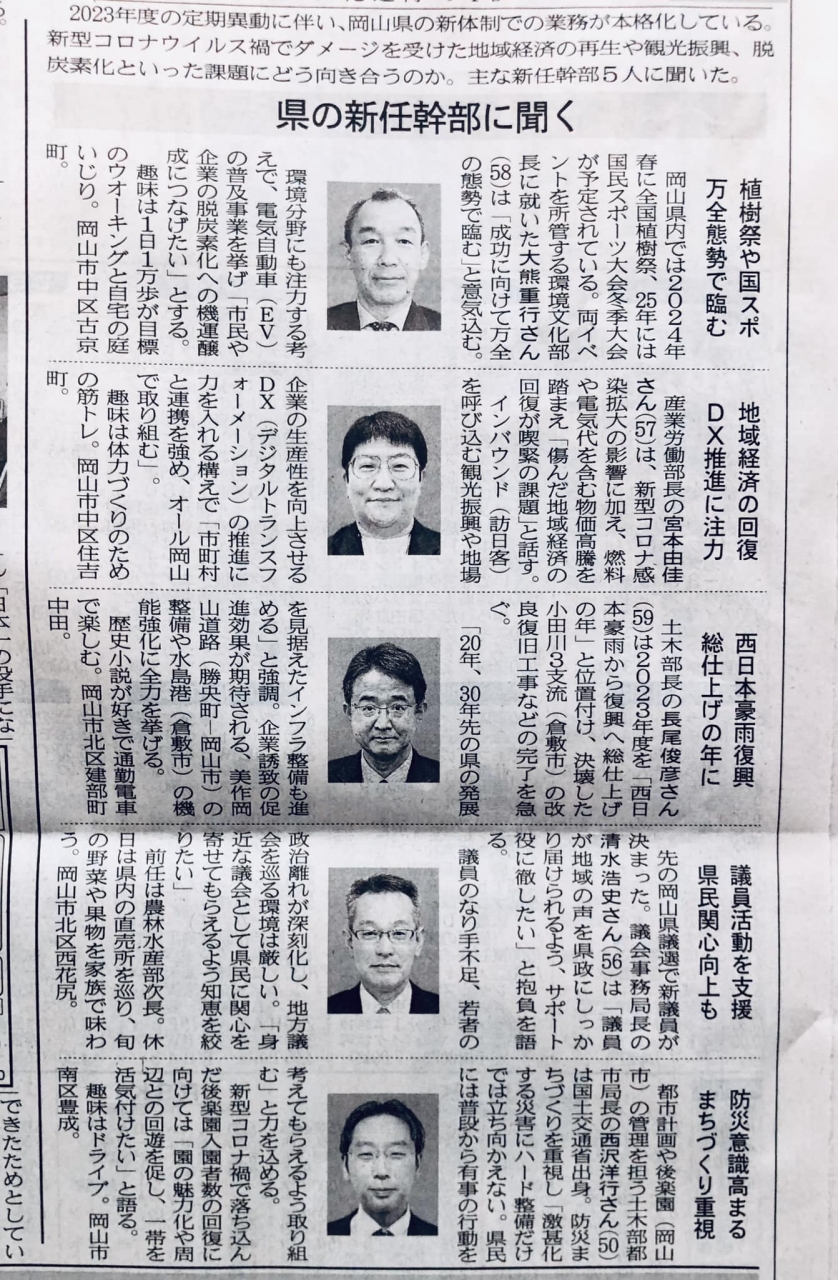 2023年度の定期異動に伴い、岡山県の新体制での業務が本格化している。
新型コロナウイルス禍でダメージを受けた地域経済の再生や観光振興、脱
炭素化といった課題にどう向き合うのか。主な新任幹部5人に聞いた。
県の新任幹部に聞く
植樹祭や国スポ
万全態勢で臨む
岡山県内では2024年
春に全国植樹祭、25年には
国民スポーツ大会冬季大会
が予定されている。両イベ
ントを所管する環境文化部
長に就いた大熊重行さん
(58)は「成功に向けて万全
の態勢で臨む」と意気込む。
環境分野にも注力する考
えで、電気自動車(EV)
の普及事業を挙げ「市民や
企業の脱炭素化への機運醸
成につなげたい」とする。
趣味は1日1万歩が目標
のウオーキングと自宅の庭
いじり。岡山市中区古京
町。
地域経済の回復
DX推進に注力
産業労働部長の宮本由佳
さん(57)は、新型コロナ感
染拡大の影響に加え、燃料
や電気代を含む物価高騰を
踏まえ「傷んだ地域経済の
回復が喫緊の課題」と話す。
インバウンド(訪日客)
を呼び込む観光振興や地場
企業の生産性を向上させる
DX(デジタルトランスフ
ォーメーション)の推進に
力を入れる構えで「市町村
と連携を強め、オール岡山
で取り組む」。
趣味は体力づくりのため
の筋トレ。岡山市中区住吉
町。
西日本豪雨復興
総仕上げの年に
土木部長の長尾俊彦さん
(59)は2023年度を「西日
本豪雨から復興へ総仕上げ
の年」と位置付け、決壊した
小田川3支流(倉敷市)の改
良復旧工事などの完了を急
ぐ。
「20年、30年先の県の発展
を見据えたインフラ整備も進
める」と強調。企業誘致の促
進効果が期待される、美作岡
山道路(勝央町―岡山市)の
整備や水島港(倉敷市)の機
能強化に全力を挙げる。
歴史小説が好きで通勤電車
で楽しむ。岡山市北区建部町
中田。
議員活動を支援
県民関心向上も
先の岡山県議選で新議員が
決まった。議会事務局長の
清水浩史さん(56)は「議員
が地域の声を県政にしっか
り届けられるよう、サポート
役に徹したい」と抱負を語
る。
議員のなり手不足、若者の
政治離れが深刻化し、地方議
会を巡る環境は厳しい。「身
近な議会として県民に関心を
寄せてもらえるよう知恵を絞
りたい」
前任は農林水産部次長。休
日は県内の直売所を巡り、旬
の野菜や果物を家族で味わ
う。岡山市北区西花尻。
防災意識高まる
まちづくり重視
都市計画や後楽園(岡山
市)の管理を担う土木部都
市局長の西沢洋行さん(50)
は国土交通省出身。防災ま
ちづくりを重視し「激甚化
する災害にハード整備だけ
では立ち向かえない。県民
には普段から有事の行動を
考えてもらえるよう取り組
む」と力を込める。
新型コロナ禍で落ち込ん
だ後楽園入園者数の回復に
向けては「園の魅力化や周
辺との回遊を促し、一帯を
活気付けたい」と語る。
趣味はドライブ。岡山市
南区豊成。
「日本一の投手にな
できたためとしてい